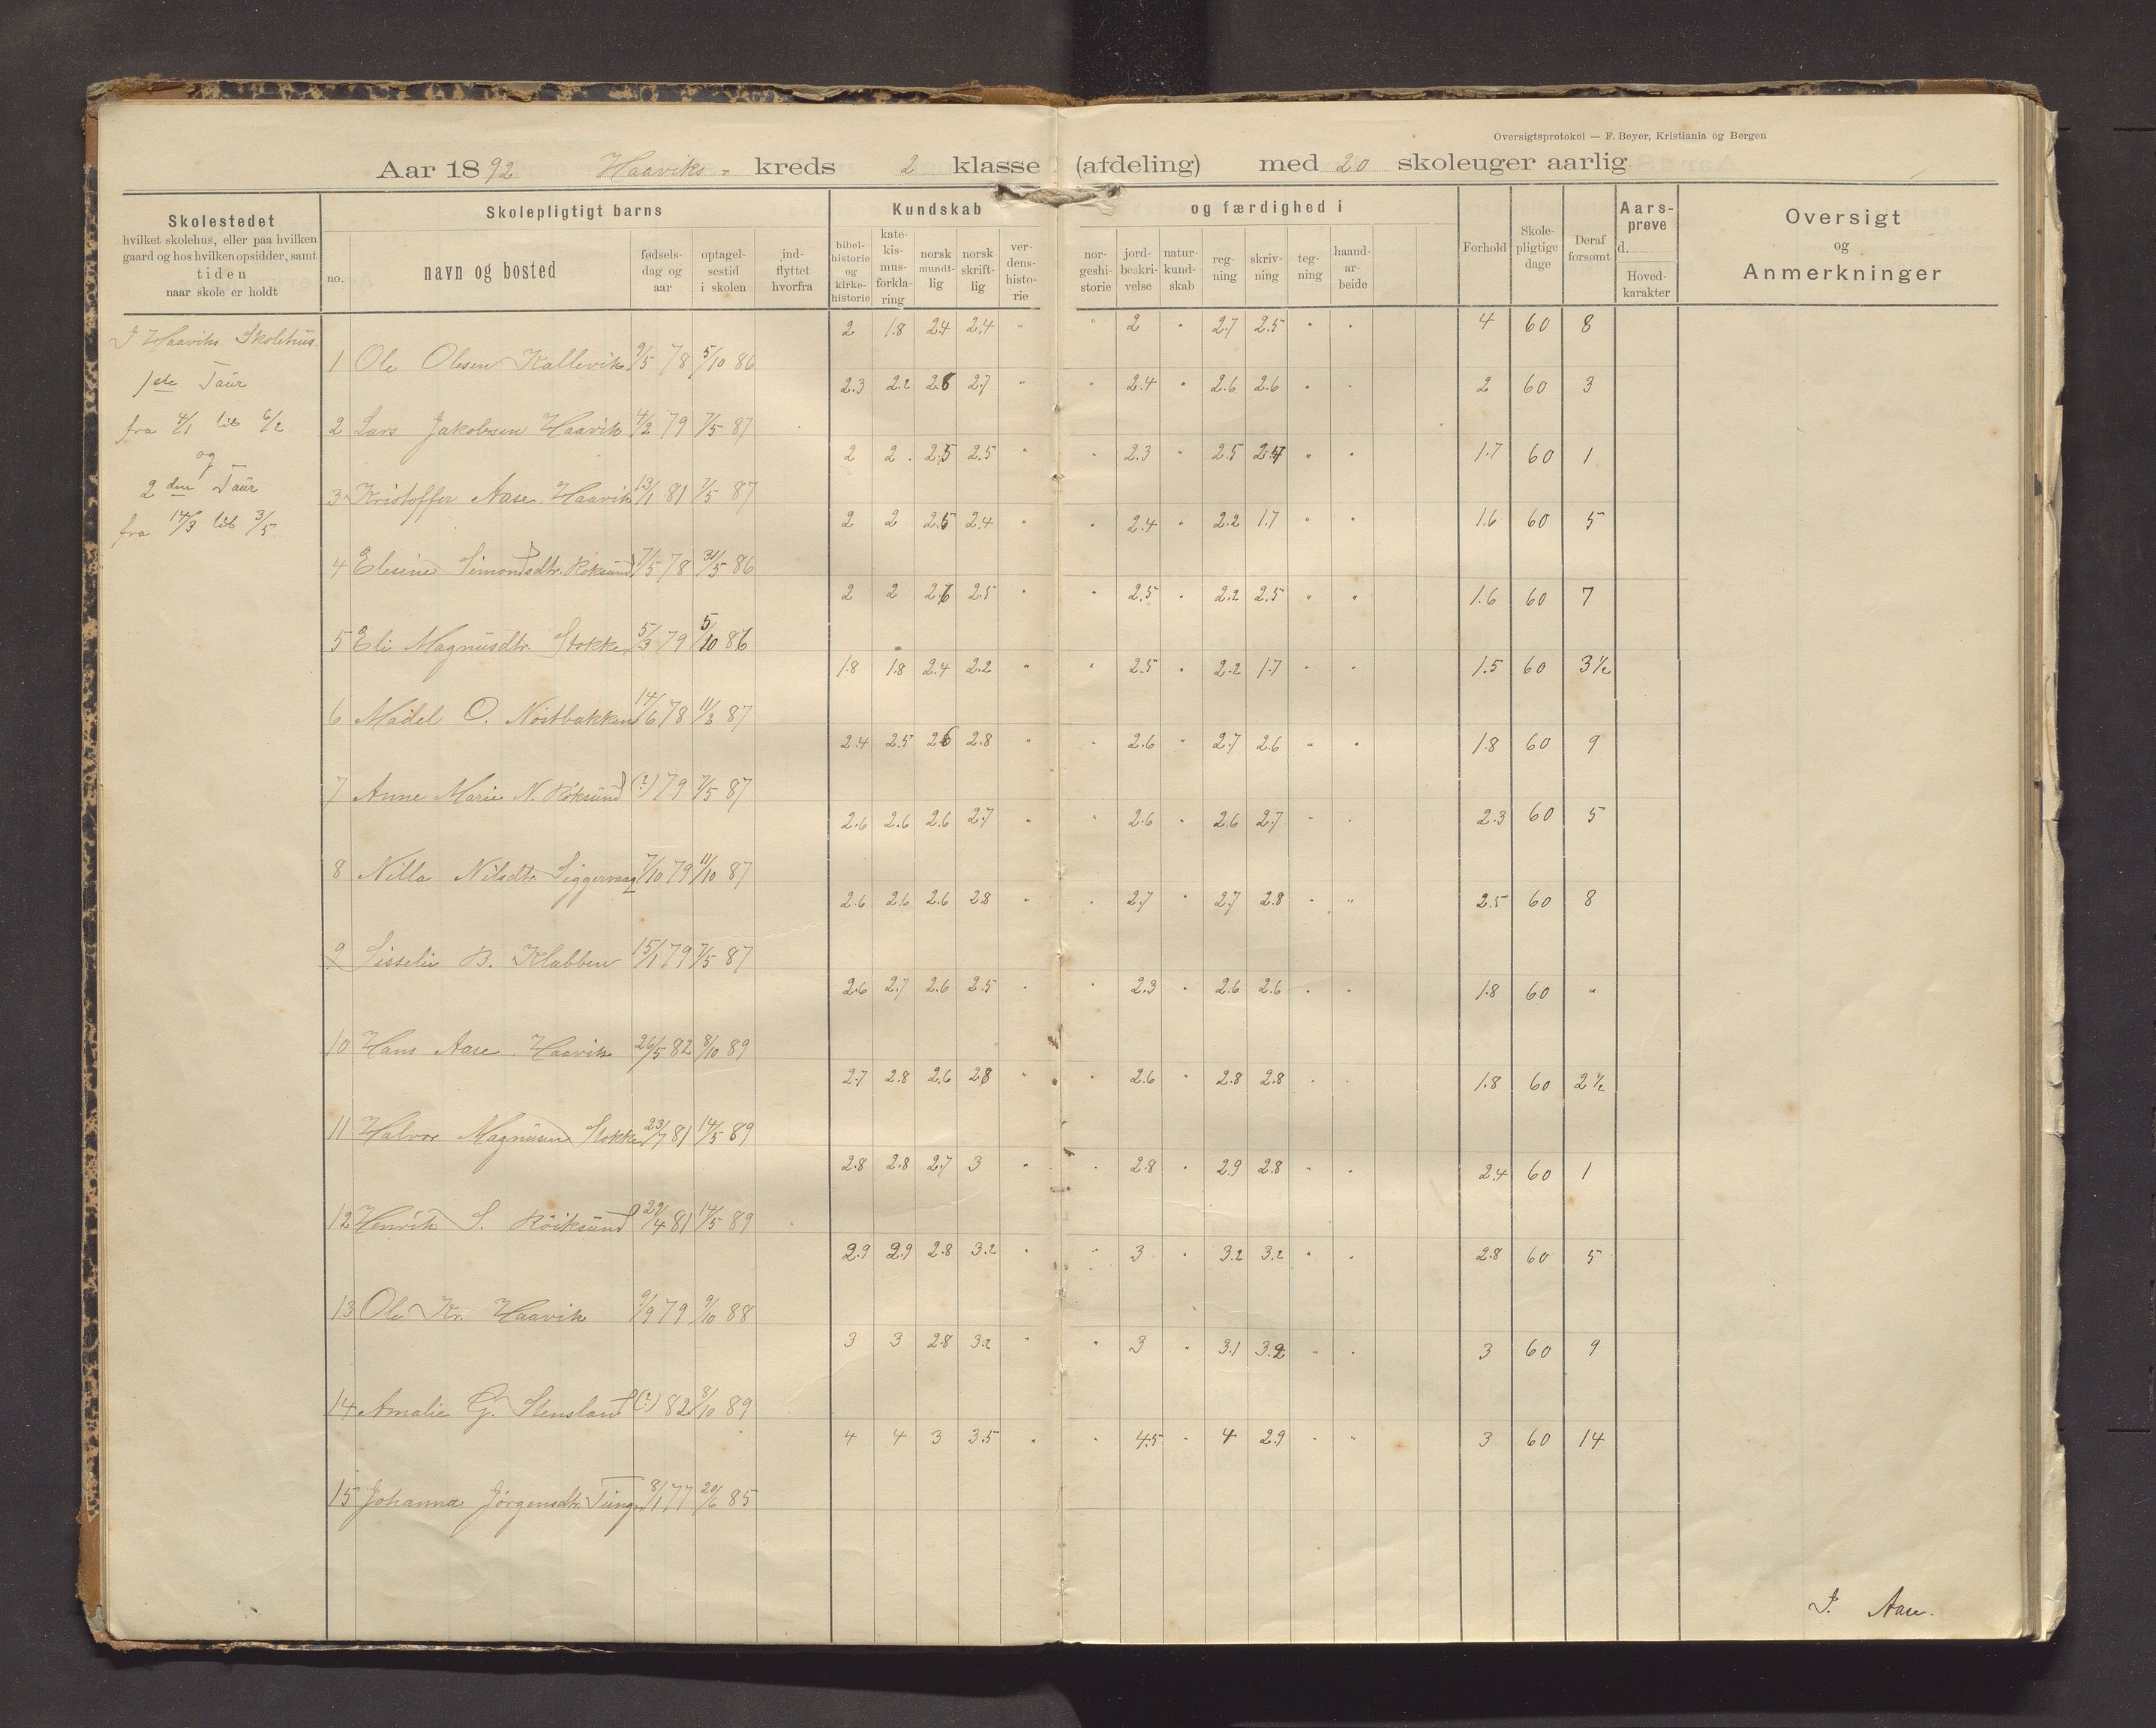 Oversigtsprotokol — F. Beyer, Kristiania og Bergen
Aar 1892 Haaviks - kreds 2 klasse (afdeling) med 20 skoleuger aarlig
Skolestedet
hvilket skolehus, eller paa hvilken
gaard og hos hvilken opsidder, samt
tiden
naar skole er holdt
Skolepligtigt barns
no.
navn og bosted
fødsels-
dag og
aar
optagel-
sestid
i skolen
ind-
flyttet
hvorfra
Kundskab og færdighed i
bibel-
historie
og
kirke-
historie
kate-
kis-
mus-
forkla-
ring
norsk
mundt-
lig
norsk
skrift-
lig
ver-
dens-
histo-
rie
nor-
geshi-
storie
jord-
beskri-
velse
natur-
kund-
skab
reg-
ning
skriv-
ning
teg-
ning
haand-
ar-
beide
Forhold
Skole-
pligtige
dage
Deraf
forsømt
Aars-
prøve
d.
Hoved-
karakter
Oversigt
og
Anmerkninger
I Haaviks Skolehus.
1ste Taur
fra 4/1 til 6/2
og
2den Taur
fra 14/3 til 3/5.
2 1.8 2.4 2.4 " " 2 " 2.7 2.5 " " 4 60 8
1 Ole Olesen Kallevik 9/5 78 5/10 86
2.3 2.2 2.6 2.7 " " 2.4 " 2.6 2.6 " " 2 60 3
2 Lars Jakobsen Haavik 4/2 79 7/5 87
2 2 2.5 2.5 " " 2.3 " 2.5 2.4 " " 1.7 60 1
3 Kristoffer Aase Haavik 13/1 81 7/5 87
2 2 2.5 2.4 " " 2.4 " 2.2 1.7 " " 1.6 60 5
4 Elesine Simondsdtr. Röksund 7/5 78 31/5 86
2 2 2.6 2.5 " " 2.5 " 2.2 2.5 " " 1.6 60 7
5 Eli Magnusdtr Stokke 5/3 79 5/10 86
1.8 1.8 2.4 2.2 " " 2.5 " 2.2 1.7 " " 1.5 60 3 1/2
6 Madel O. Nöstbakken 14/6 78 11/3 87
2.4 2.5 2.6 2.8 " " 2.6 " 2.7 2.6 " " 1.8 60 9
7 Anne Marie N. Röksund (?) 79 7/5 87
2.6 2.6 2.6 2.7 " " 2.6 " 2.6 2.7 " " 2.3 60 5
8 Nilla Nilsdtr. Siggervaag 7/10 79 11/10 87
2.6 2.6 2.6 2.8 " " 2.7 " 2.7 2.8 " " 2.5 60 8
9 Sisselie B. Klubben 15/1 79 7/5 87
2.6 2.7 2.6 2.5 " " 2.3 " 2.6 2.6 " " 1.8 60 "
10 Hans Aase Haavik 26/5 82 8/10 89
2.7 2.8 2.6 2.8 " " 2.6 " 2.8 2.8 " " 1.8 60 2 1/2
11 Halvor Magnusen Stokke 23/7 81 14/5 89
2.8 2.8 2.7 3 " " 2.8 " 2.9 2.8 " " 2.4 60 1
12 Henrik S. Röiksund 29/4 81 14/5 89
2.9 2.9 2.8 3.2 " " 3 " 3.2 3.2 " " 2.8 60 5
13 Ole Kr. Haavik 9/9 79 9/10 88
3 3 2.8 3.2 " " 3 " 3.1 3.2 " " 3 60 9
14 Amalie G. Stensland (?) 82 8/10 89
4 4 3 3.5 " " 4.5 " 4 2.9 " " 3 60 14
15 Johanna Jörgensdtr. Tunge 8/1 77 20/6 85
I. Aase.